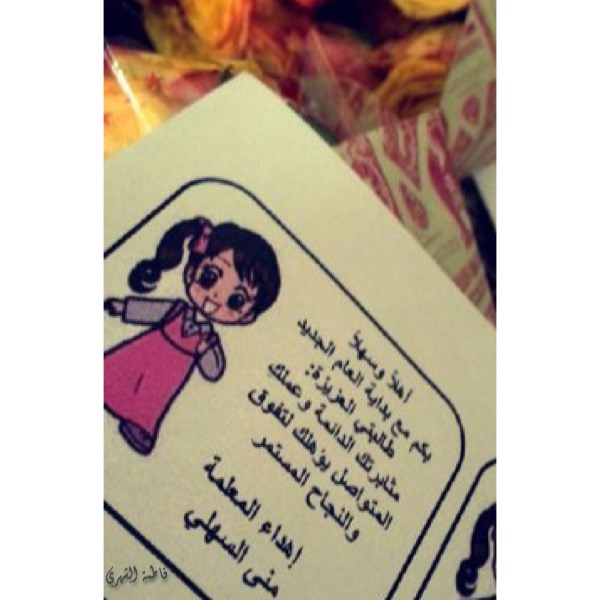 أهلاً وسهلاً
بكم مع بداية العام الجديد
طالبتي العزيزة:
مثابرتك الدائمة وعملك
المتواصل يؤهلك لتفوق
والنجاح المستمر
إهداء المعلمة
منى السهلي
فاطمة الشهري